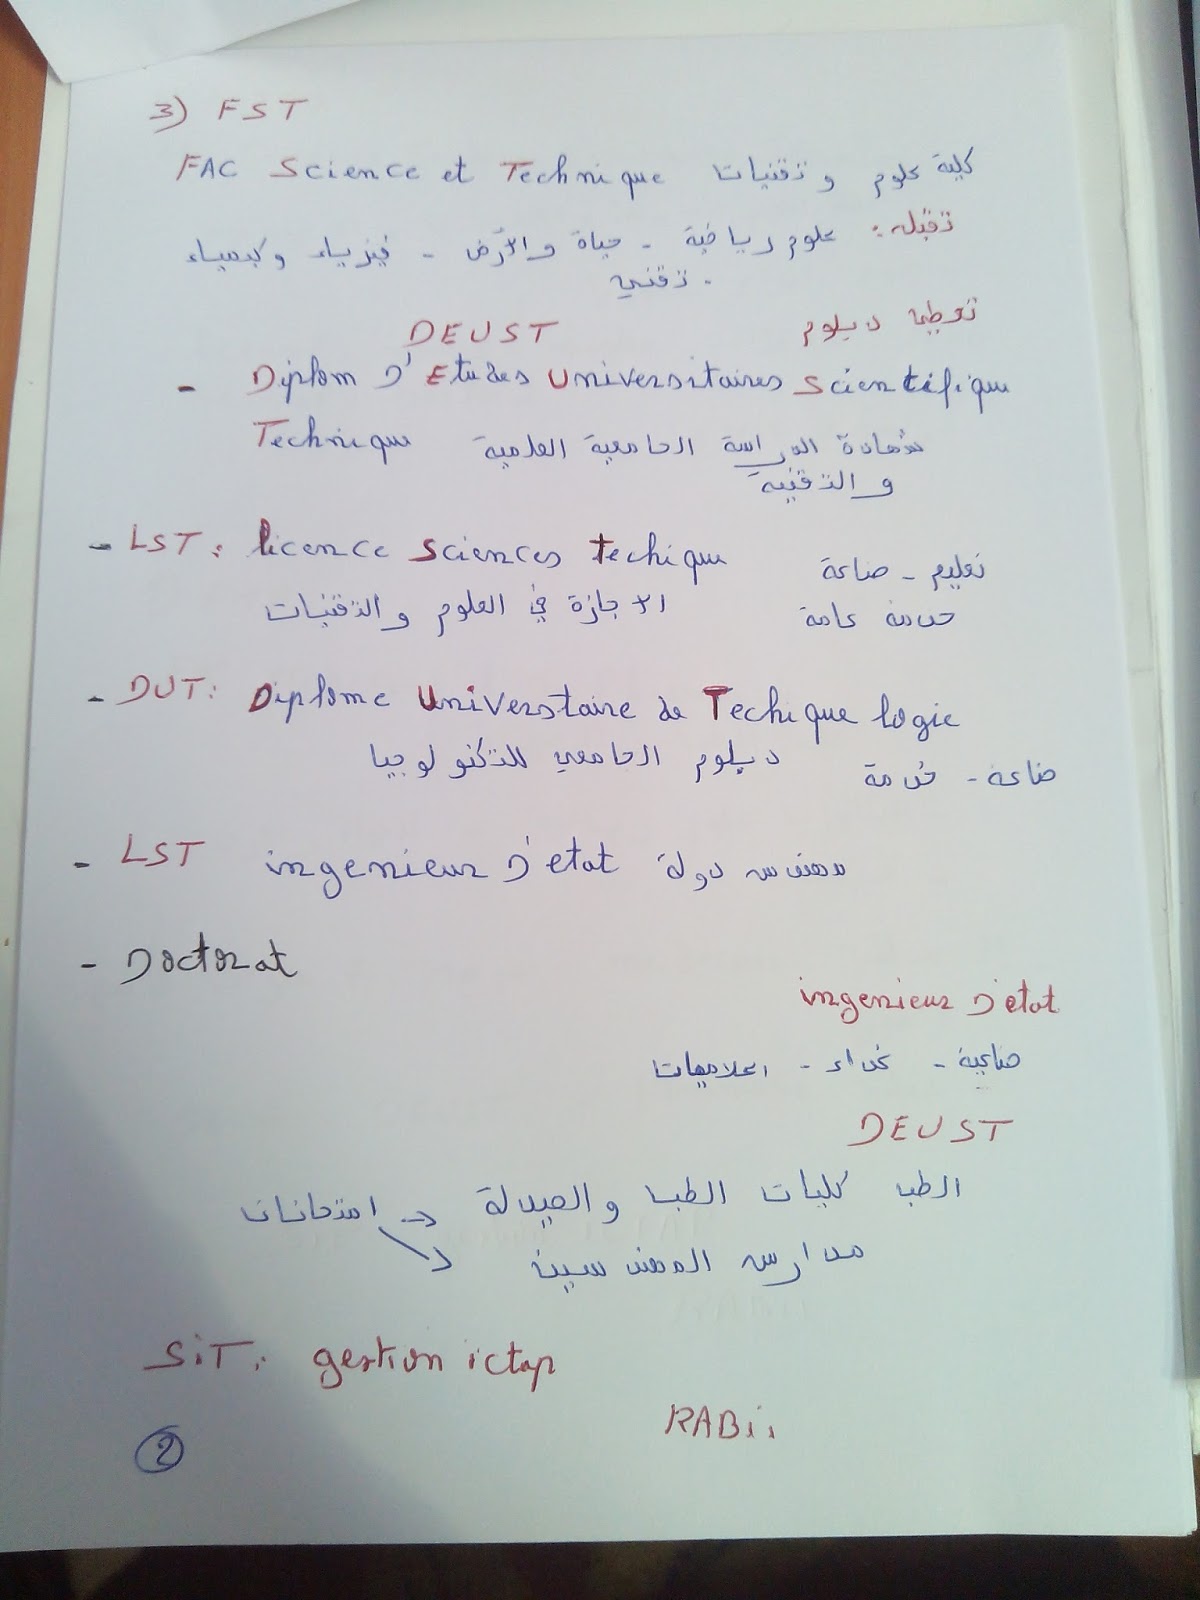 3) FST
FAC Science et Technique كلية علوم و تقنيات
تقبل: علوم رياضية - حياة والأرض - فيزياء وكيمياء
- تقني
DEUST تعطي دبلوم
- Diplom D'Etudes Universitaires Scientifique
Technique شهادة الدراسة الجامعية العلمية
والتقنية
- LST: licence Sciences Techique تعليم - صناعة
الاجازة في العلوم والتقنيات خدمة عامة
- DUT: Diplome Universtaire de Techique logie
دبلوم الجامعي للتكنولوجيا صناعة - خدمة
- LST ingenieur D'etat مهندس دولة
- Doctorat
ingenieur D'etat
صناعية - غذاء - اعلاميات
DEUST
الطب كليات الطب والصيدلة -> امتحانات
مدارس المهندسين
SiT: gestion ictap
RABii
2